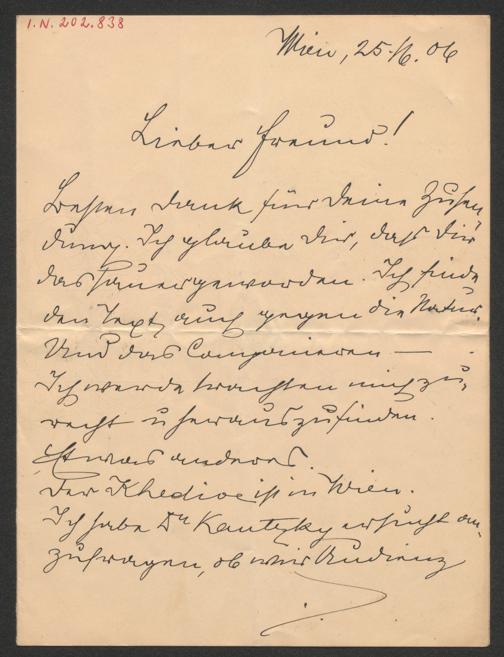 I.N. 202.838
Wien, 25./6. 06
Lieber Freund!
Besten Dank für Deine Zusen
dung. Ich glaube Dir, dass Dir
das sauer geworden. Ich finde
den Text auch gegen die Natur.
Und das Componieren —
Ich werde trachten mich zu-
recht u herauszufinden.
Etwas anderes.
Der Khedive ist in Wien.
Ich habe Dr Kautzky ersucht an-
zufragen, ob wir Audienz